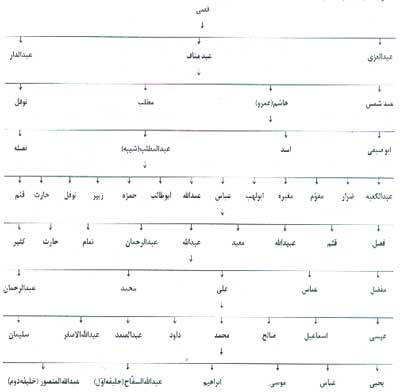 قصی
عبدالعزی عبد مناف عبدالدار
عبد شمس هاشم(عمرو) مطلب نوفل
ابوصیفی اسد عبدالمطلب(شیبه) نضله
عبدالکعبه ضرار مقوّم مغیره ابولهب عباس عبدالله ابوطالب حمزه زبیر نوفل حارث قثم
فضل قثم عبیدالله معبد عبدالله عبدالرحمان تمام حارث کثیر
مفضل عباس علی محمد عبدالرحمان
عیسی اسماعیل صالح محمد داود عبدالصمد عبدالله الاصغر سلیمان
یحیی عباس موسی ابراهیم عبدالله السفّاح(خلیفه اوّل) عبدالله المنصور (خلیفه دوم)